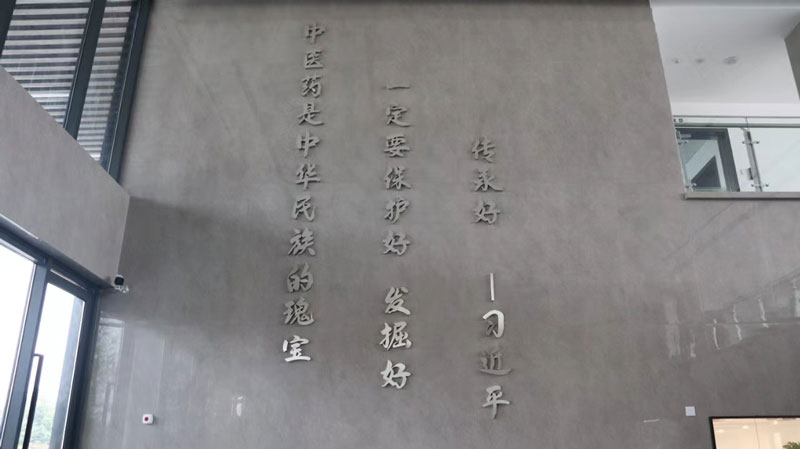 中医药是中华民族的瑰宝
一定要保护好 发掘好
传承好 —习近平